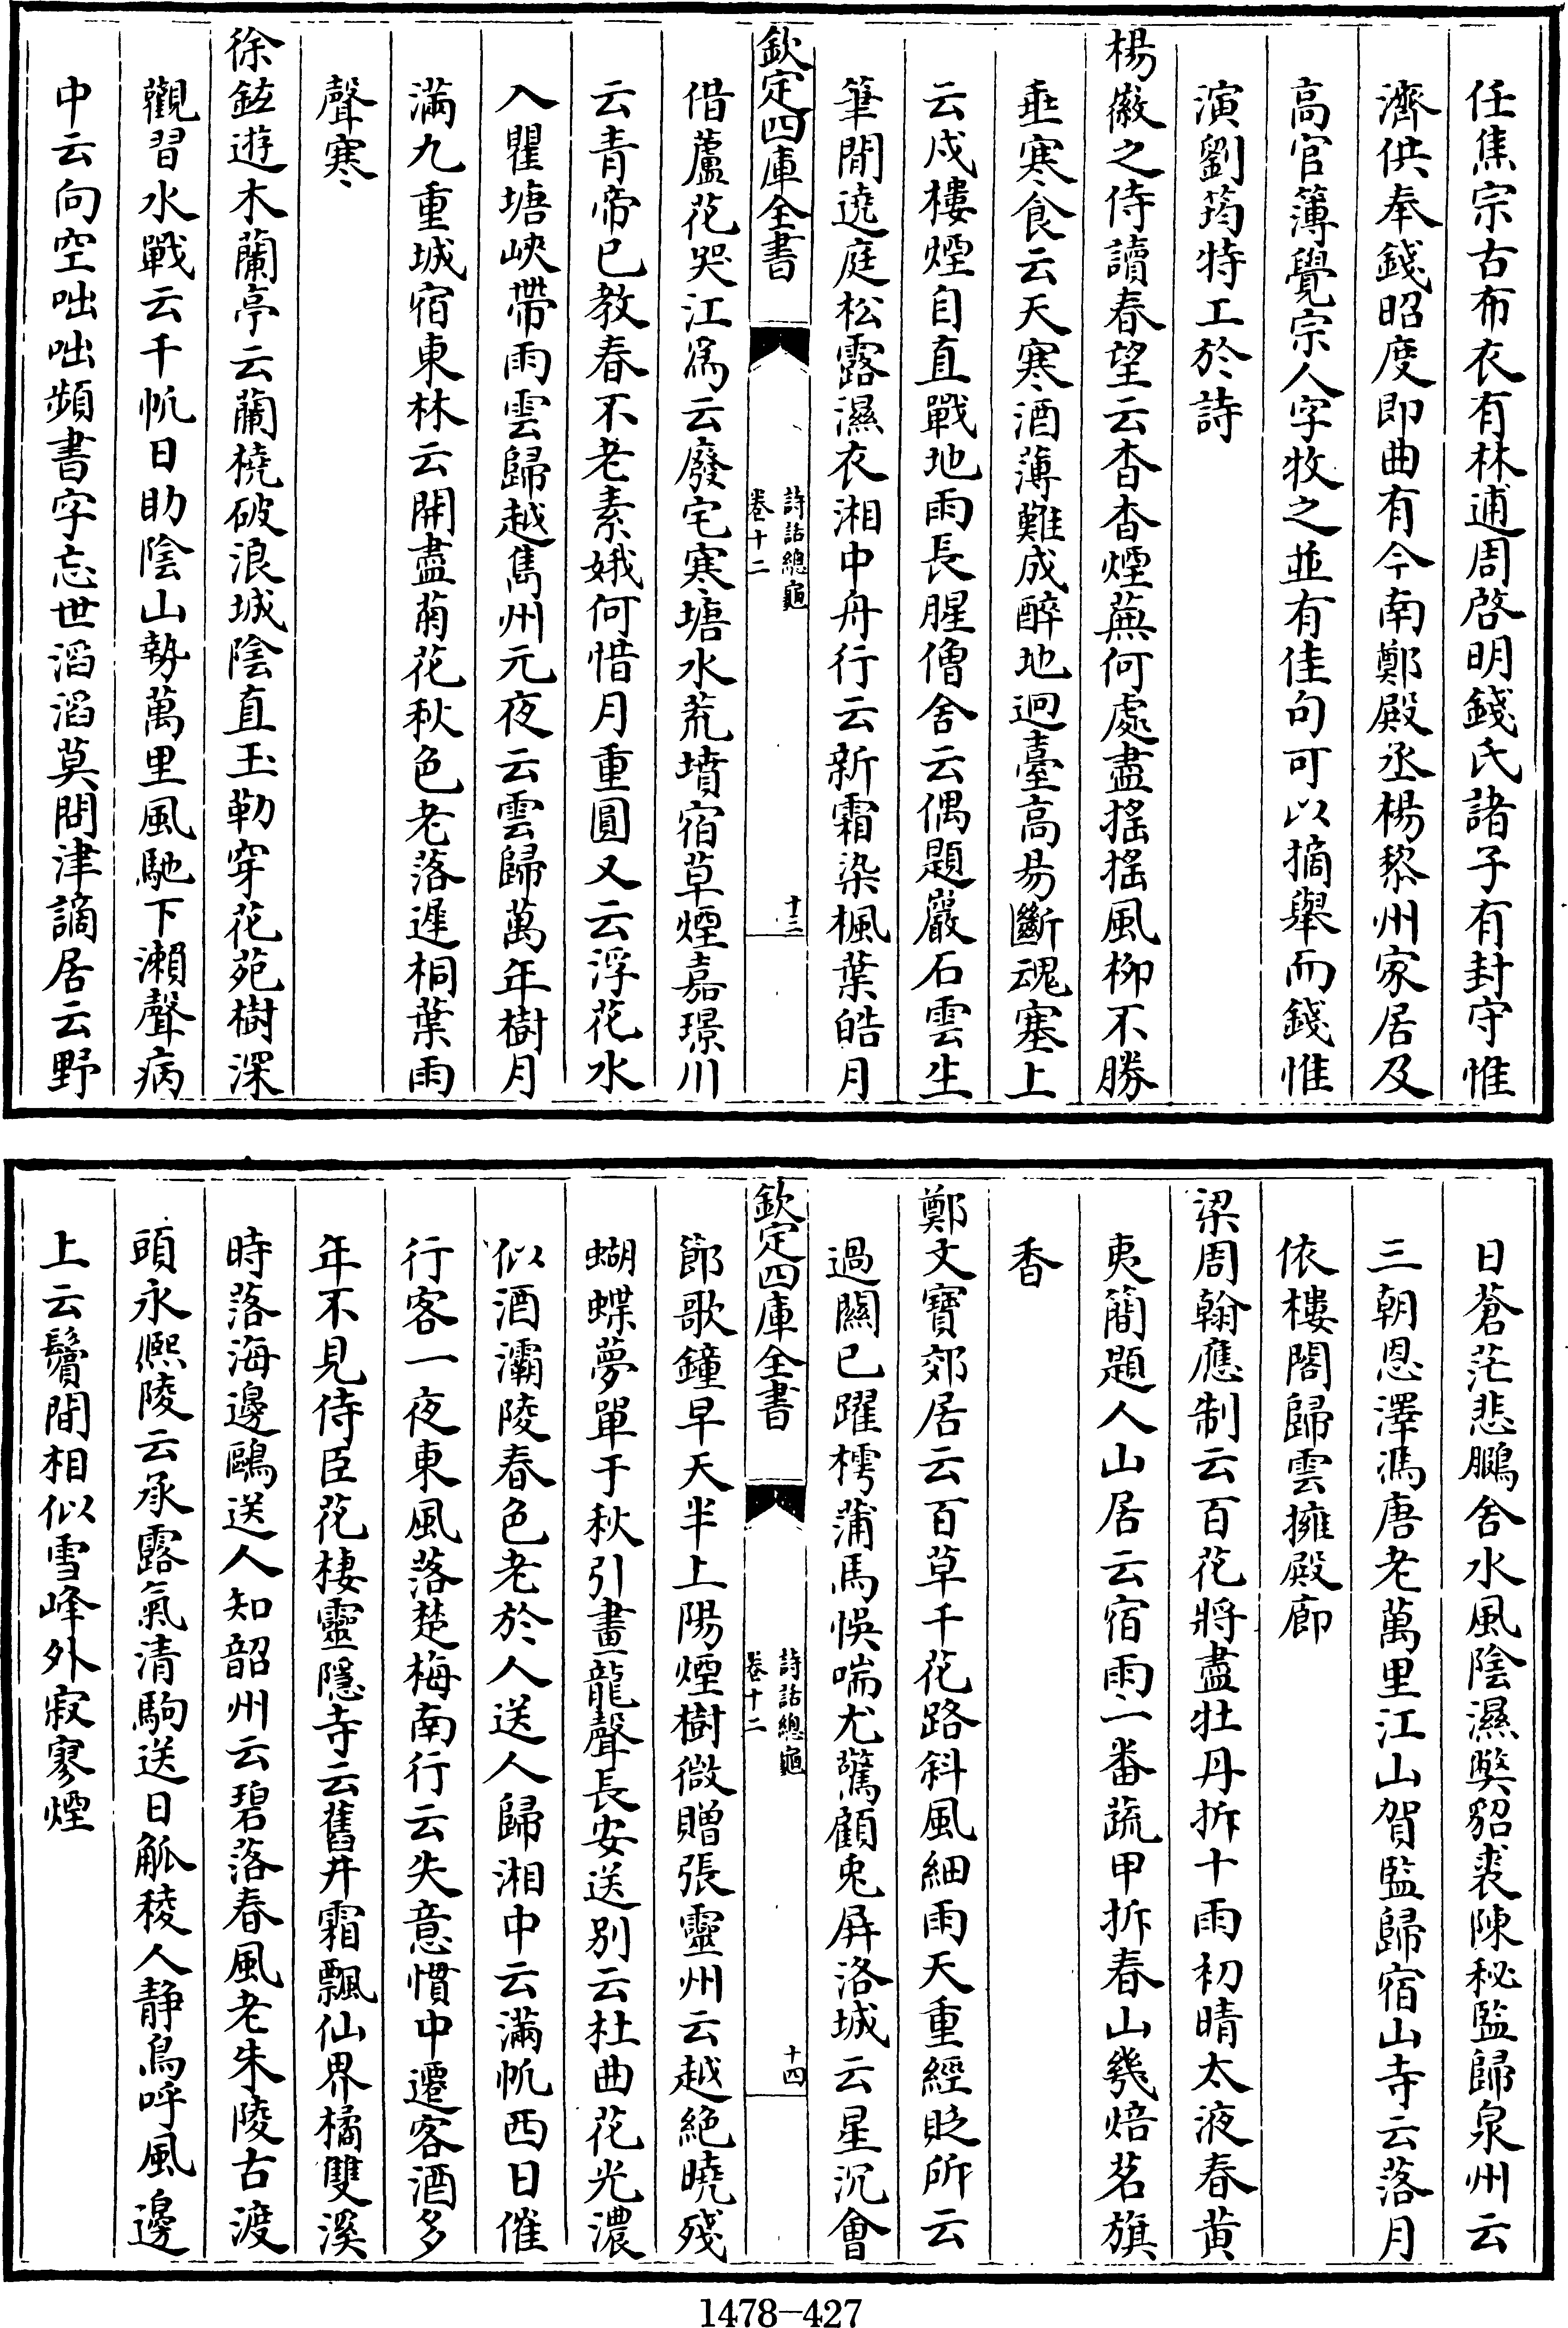 任焦宗古布衣有林逋周啓明錢氏諸子有封守惟
濟供奉錢昭度即曲有今南鄭殿丞楊黎州家居及
高官簿覺宗人字牧之並有佳句可以摘舉而錢惟
演劉筠特工於詩
楊徽之侍讀春望云杳杳煙蕪何處盡搖搖風柳不勝
垂寒食云天寒酒薄難成醉地迥臺高易斷魂塞上
云戍樓煙自直戰地雨長腥僧舍云偶題巖石雲生
筆閒遶庭松露濕衣湘中舟行云新霜染楓葉皓月
欽定四庫全書
詩話總龜
卷十二
十三
借蘆花哭江為云廢宅寒塘水荒墳宿草煙嘉璟川
云青帝已教春不老素娥何惜月重圓又云浮花水
入瞿塘峽帶雨雲歸越嶲州元夜云雲歸萬年樹月
滿九重城宿東林云開盡菊花秋色老落遲桐葉雨
聲寒
徐鉉遊木蘭亭云蘭橈破浪城陰直玉勒穿花苑樹深
觀習水戰云千帆日助陰山勢萬里風馳下瀨聲病
中云向空咄咄頻書字忘世滔滔莫問津謫居云野
日蒼茫悲鵩舍水風陰濕獘貂裘陳秘監歸泉州云
三朝恩澤馮唐老萬里江山賀監歸宿山寺云落月
依樓閣歸雲擁殿廊
梁周翰應制云百花將盡牡丹拆十雨初晴太液春黃
夷簡題人山居云宿雨一番蔬甲拆春山幾焙茗旗
香
鄭文寶郊居云百草千花路斜風細雨天重經貶所云
過關已躍樗蒲馬悞喘尤驚顧兎屏洛城云星沉會
欽定四庫全書
詩話總龜
卷十二
十四
節歌鐘早天半上陽煙樹微贈張靈州云越絶曉殘
蝴蝶夢單于秋引畫龍聲長安送别云杜曲花光濃
似酒灞陵春色老於人送人歸湘中云滿帆西日催
行客一夜東風落楚梅南行云失意慣中遷客酒多
年不見侍臣花棲靈隱寺云舊井霜飄仙界橘雙溪
時落海邊鷗送人知韶州云碧落春風老朱陵古渡
頭永熈陵云承露氣清駒送日觚稜人静鳥呼風邊
上云鬢間相似雪峰外寂寥煙
1478-427